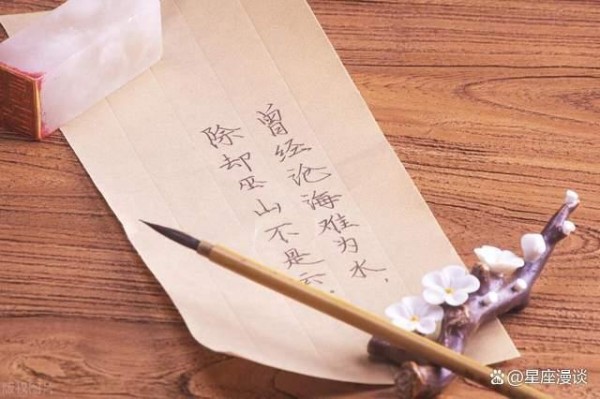 曾经沧海难为水，
除却巫山不是云。
@星座漫谈